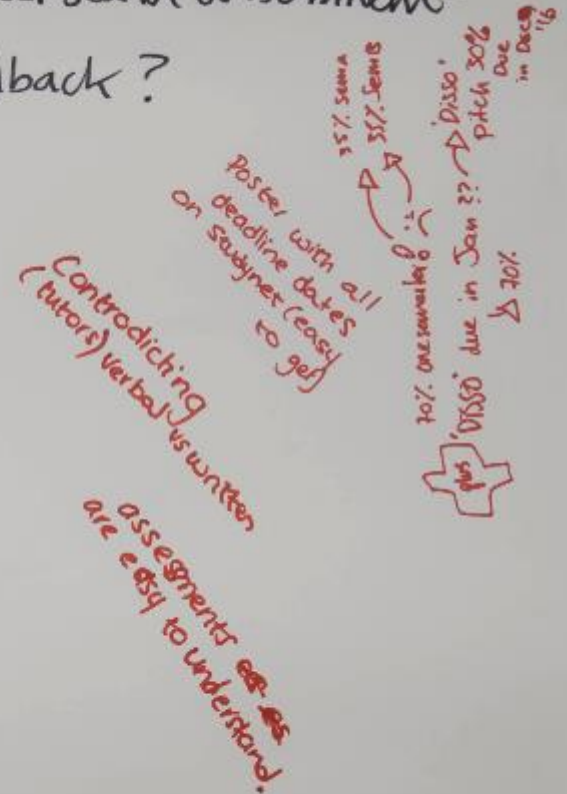 lback?
Poster with all
deadline dates
on studynet (easy
to get)
Contradicting
(tutors) verbal vs written
assesments
are easy to understand.
35% sem A
35% Sem B
70% one semester
plus
'Disso' due in Jan ??
70%
'Disso'
pitch 30%
Due
in Dec